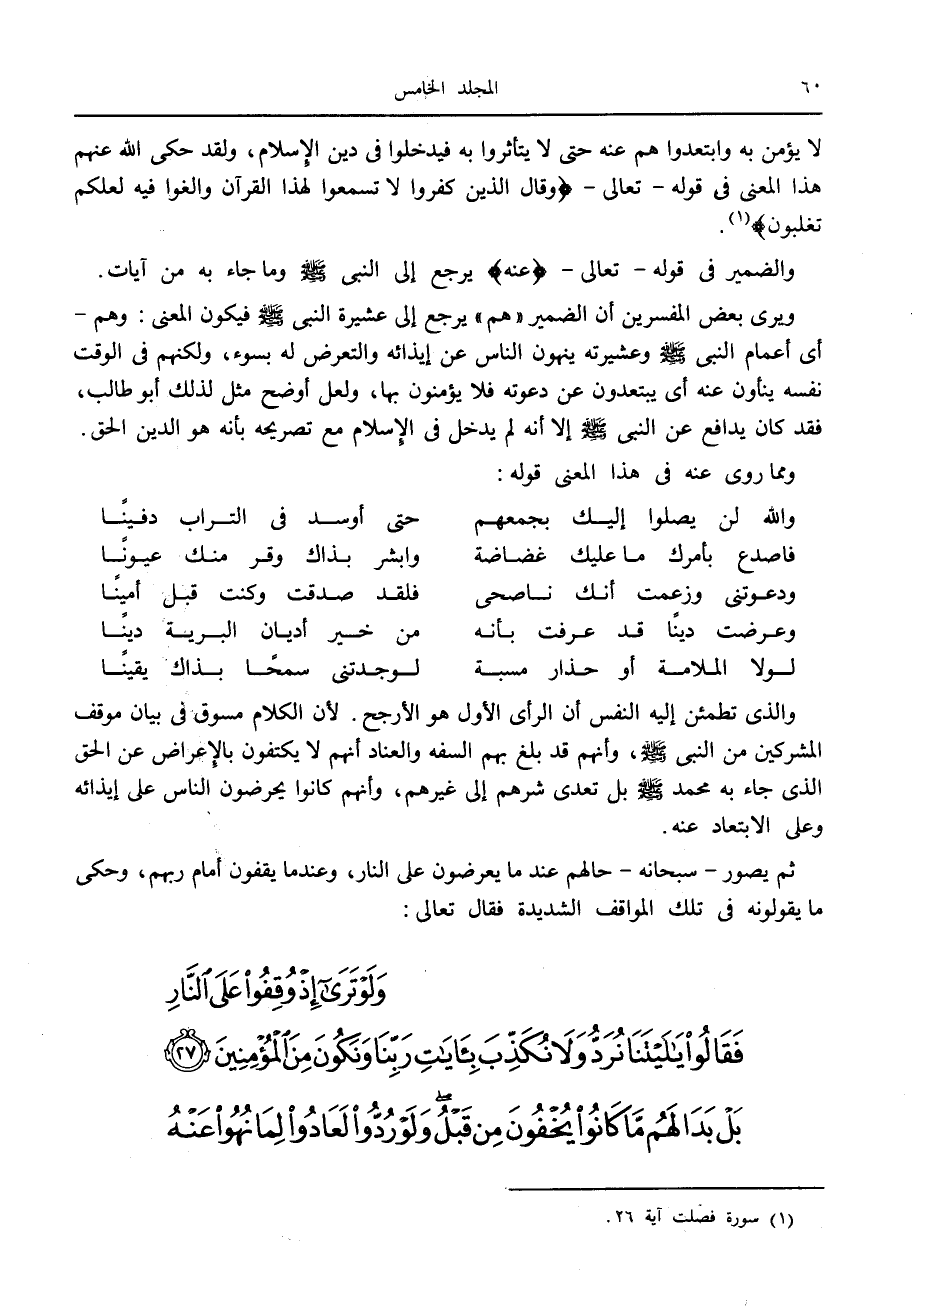 ٦٠ المجلد الخامس
لا يؤمن به وابتعدوا هم عنه حتى لا يتأثروا به فيدخلوا فى دين الإسلام، ولقد حكى الله عنهم
هذا المعنى فى قوله - تعالى - ﴿وقال الذين كفروا لا تسمعوا لهذا القرآن والغوا فيه لعلكم
تغلبون﴾(١).
والضمير فى قوله - تعالى - ﴿عنه﴾ يرجع إلى النبى ﷺ وما جاء به من آيات.
ويرى بعض المفسرين أن الضمير «هم» يرجع إلى عشيرة النبى ﷺ فيكون المعنى : وهم -
أى أعمام النبى ﷺ وعشيرته ينهون الناس عن إيذائه والتعرض له بسوء، ولكنهم فى الوقت
نفسه ينأون عنه أى يبتعدون عن دعوته فلا يؤمنون بها، ولعل أوضح مثل لذلك أبو طالب،
فقد كان يدافع عن النبى ﷺ إلا أنه لم يدخل فى الإسلام مع تصريحه بأنه هو الدين الحق.
ومما روى عنه فى هذا المعنى قوله :
والله لن يصلوا إليـك بجمعهـم حتى أوسـد فى التـراب دفـينًـا
فاصدع بأمرك ما عليك غضـاضة وابشر بـذاك وقـر منـك عيـونًـا
ودعـوتنى وزعمت أنـك نـاصحى فلقـد صـدقت وكنت قبـل أمينًـا
وعـرضت دينًا قـد عـرفت بـأنـه من خـير أديـان البـريـة دينًـا
لـولا المـلامـة أو حـذار مسبـة لـوجـدتنى سمحًـا بـذاك يقينًـا
والذى تطمئن إليه النفس أن الرأى الأول هو الأرجح. لأن الكلام مسوق فى بيان موقف
المشركين من النبى ﷺ، وأنهم قد بلغ بهم السفه والعناد أنهم لا يكتفون بالإعراض عن الحق
الذى جاء به محمد ﷺ بل تعدى شرهم إلى غيرهم، وأنهم كانوا يحرضون الناس على إيذائه
وعلى الابتعاد عنه.
ثم يصور - سبحانه - حالهم عند ما يعرضون على النار، وعندما يقفون أمام ربهم، وحكى
ما يقولونه فى تلك المواقف الشديدة فقال تعالى :
وَلَوْ تَرَىٰٓ إِذْ وُقِفُوا۟ عَلَى ٱلنَّارِ
فَقَالُوا۟ يَـٰلَيْتَنَا نُرَدُّ وَلَا نُكَذِّبَ بِـَٔايَـٰتِ رَبِّنَا وَنَكُونَ مِنَ ٱلْمُؤْمِنِينَ ﴿٢٧﴾
بَلْ بَدَا لَهُم مَّا كَانُوا۟ يُخْفُونَ مِن قَبْلُ ۖ وَلَوْ رُدُّوا۟ لَعَادُوا۟ لِمَا نُهُوا۟ عَنْهُ
(١) سورة فصلت آية ٢٦.